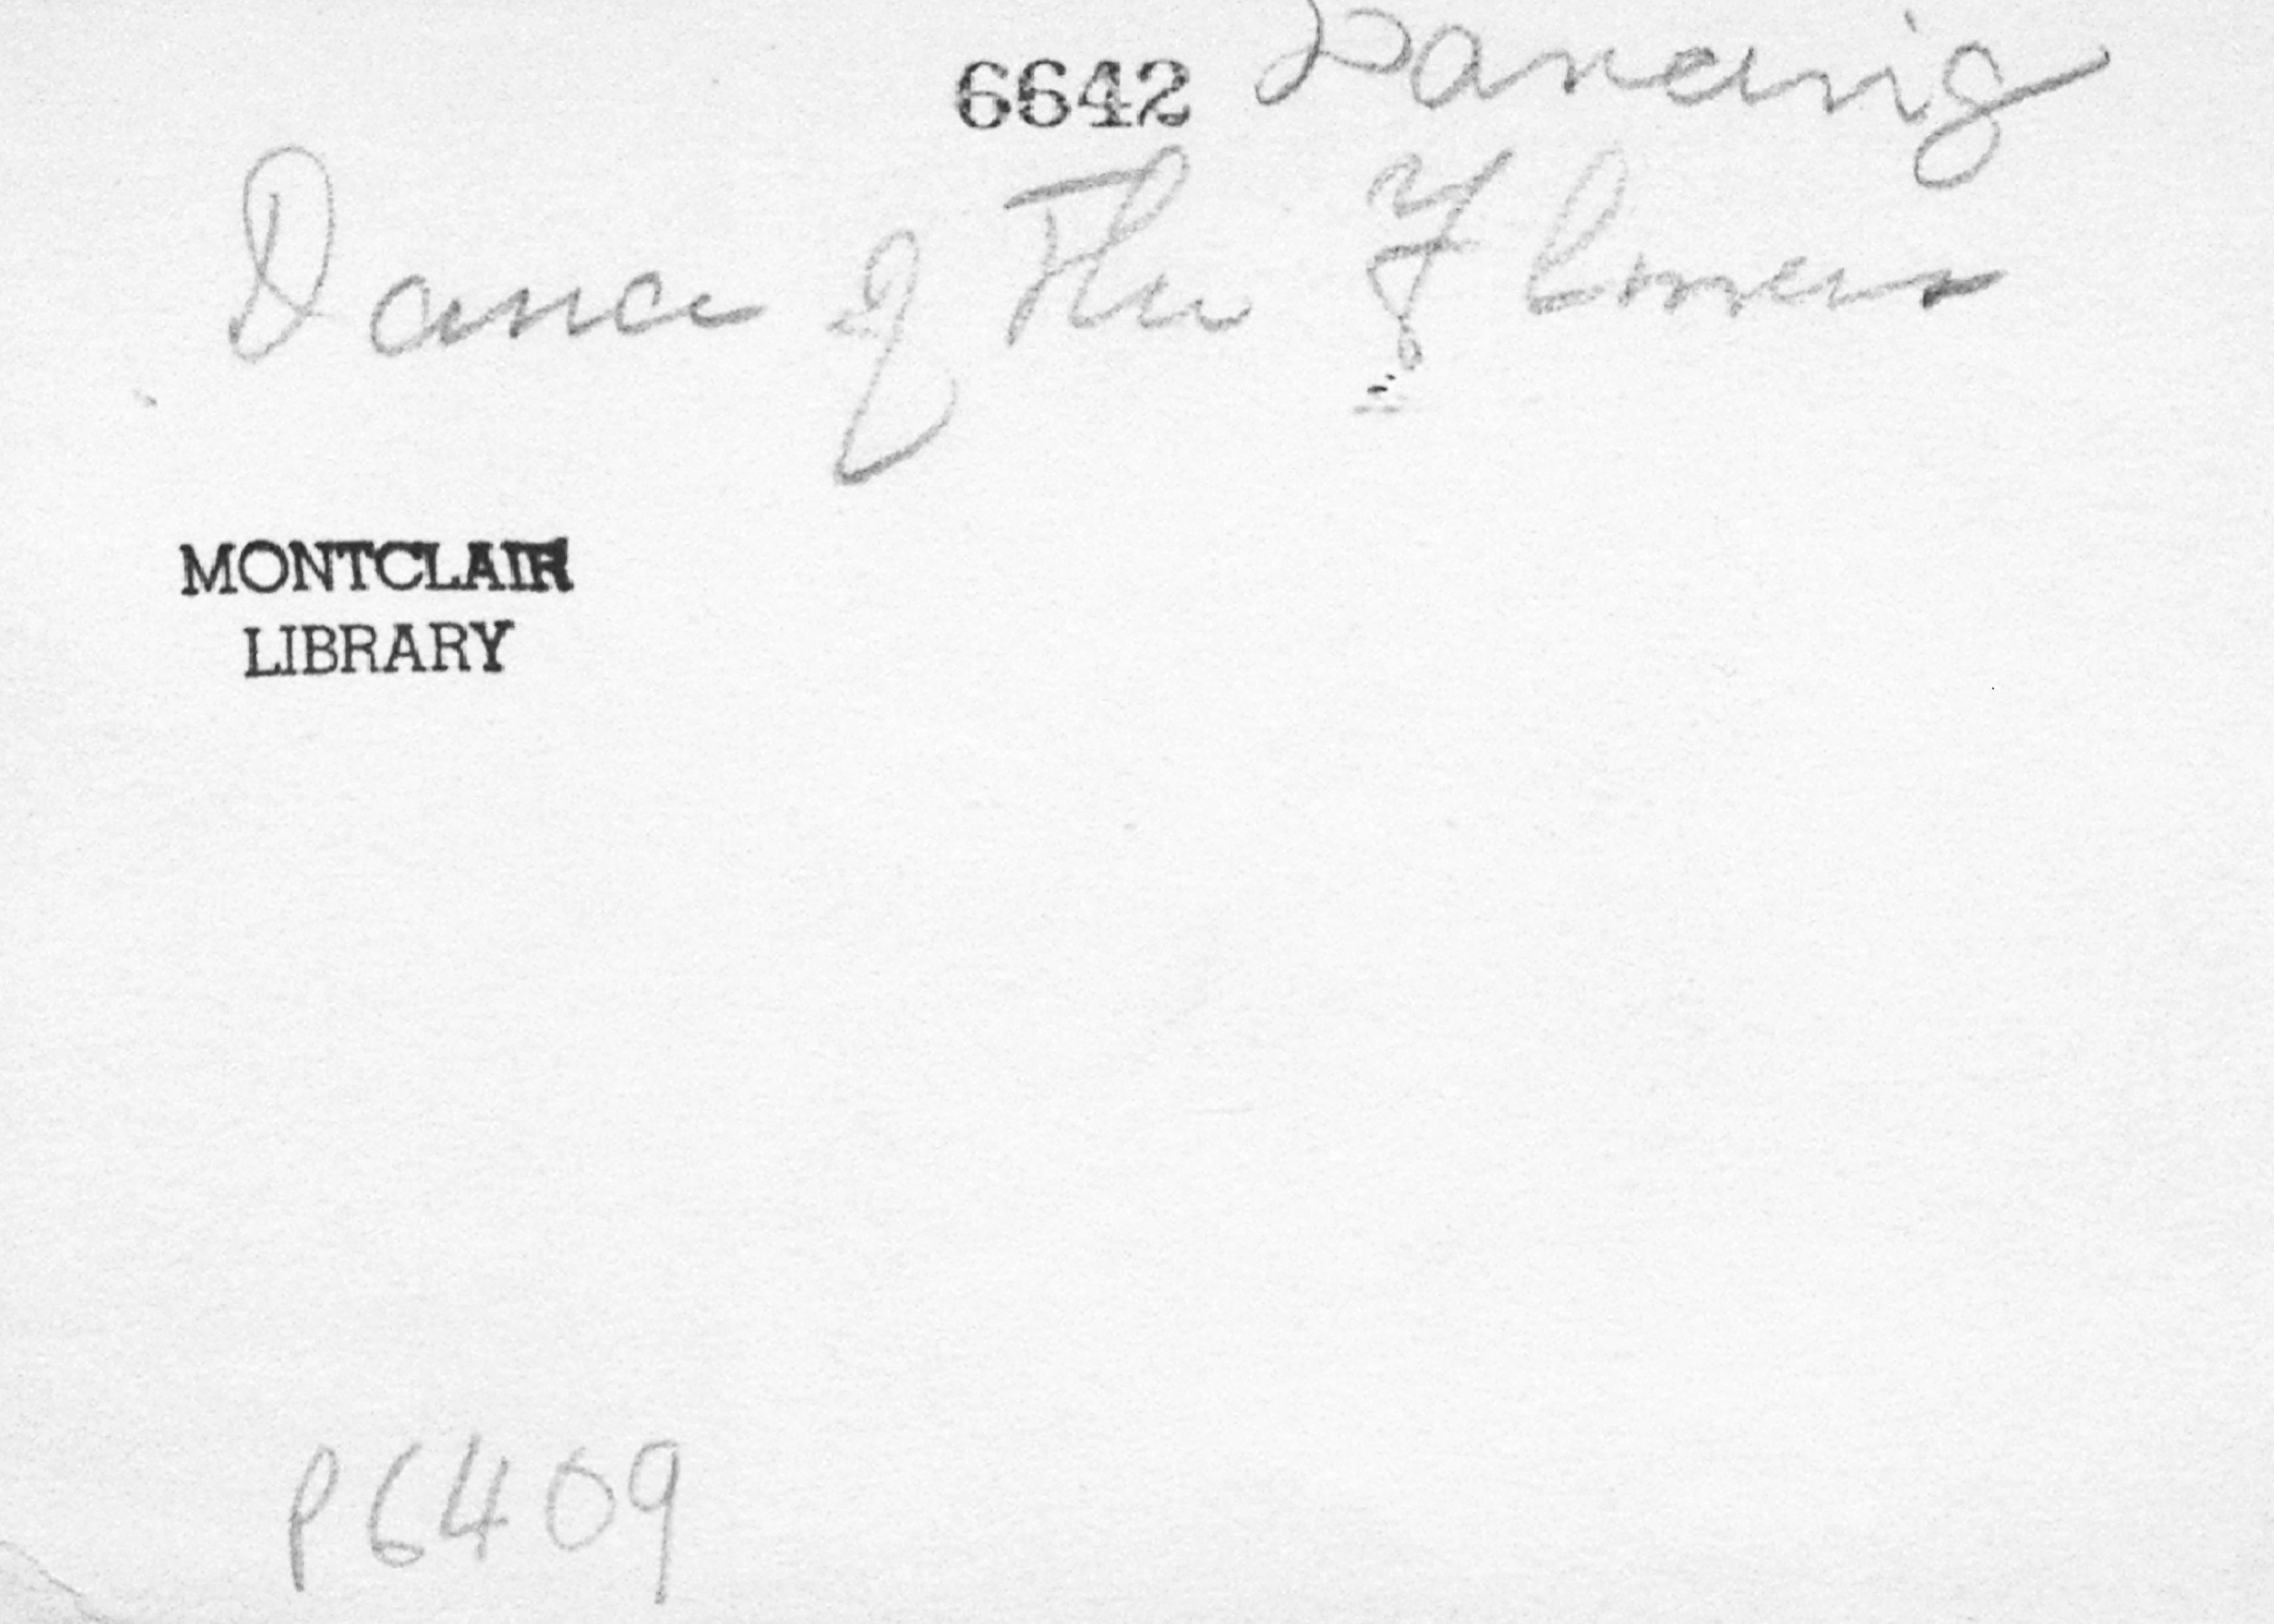 6642 Dancing
Dance of The Flowers
MONTCLAIR
LIBRARY
P6409